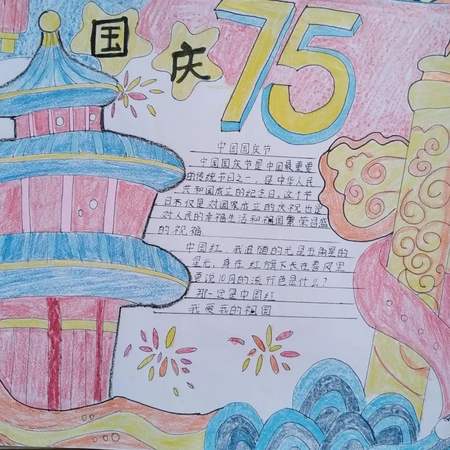 国庆
75
中国国庆节
中国国庆节是中国最重要
的传统节日之一,是中华人民
共和国成立的纪念日,这个节
日不仅是对国家成立的庆祝也是
对人民的幸福生活和祖国繁荣昌盛
的祝福
中国红,我且随的光是五角星的
星光,身在红旗下长在春风里
要说10月的流行色是什么?
那一定是中国红
我爱我的祖国